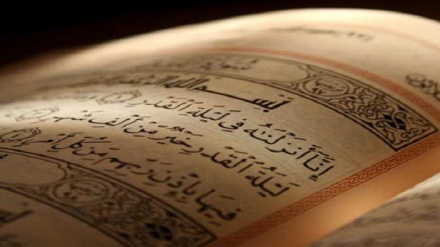 بِسْمِ ٱللَّهِ
إِنَّآ أَنزَلْنَٰهُ فِى لَيْلَةِ ٱلْقَدْرِ
لَيْلَةُ ٱلْقَدْرِ خَيْرٌ مِّنْ أَلْفِ شَهْرٍ
فِيهَا بِإِذْنِ رَبِّهِم مِّن كُلِّ أَمْرٍ